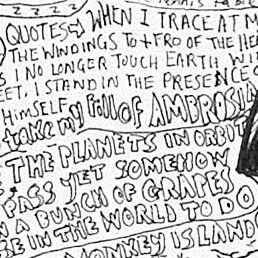 z z z z
QUOTES: WHEN I TRACE AT M
THE WINDINGS TO + FRO OF THE HE
I NO LONGER TOUCH EARTH WI
EET, I STAND IN THE PRESENCE O
HIMSELF
take my full OF AMBROSIA
THE PLANETS IN ORBIT
PASS YET SOMEHOW
A BUNCH OF GRAPES
E IN THE WORLD TO DO
MONKEY ISLAND